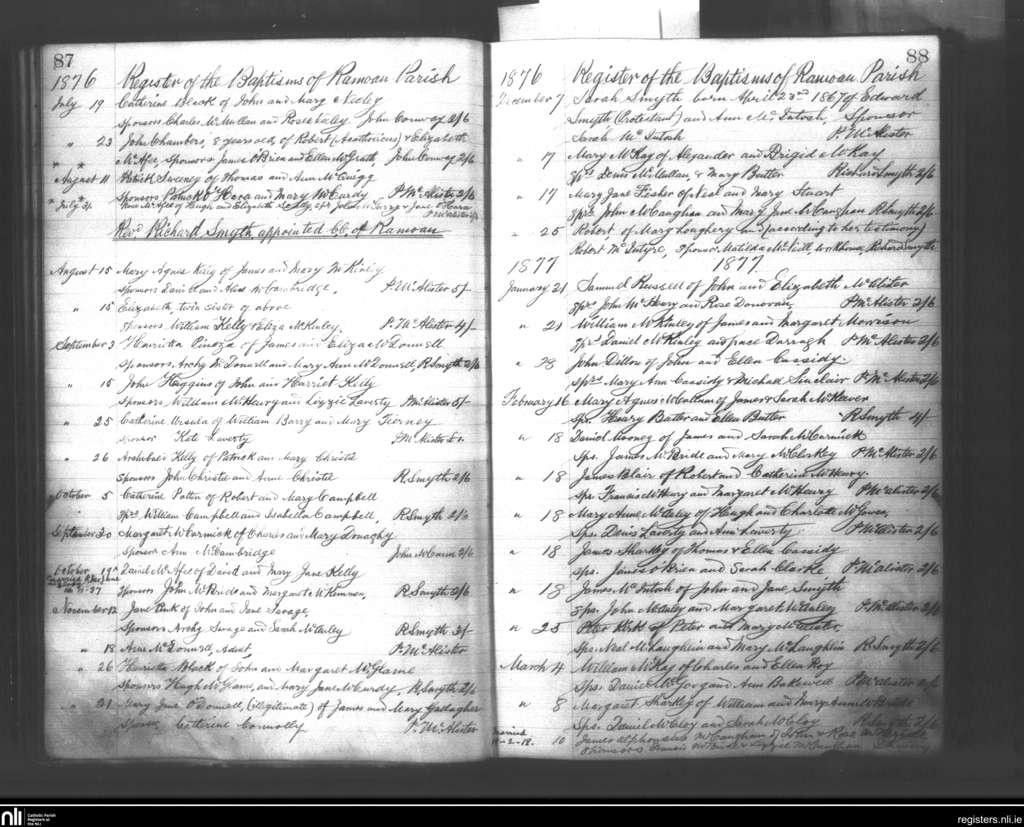 87
1876 Register of the Baptisms of Ramoan Parish
July 19 Catherine Black of John and Mary Neeley
Sponsors Charles McMullan and Rose John Conway 2/6
" 23 John Chambers, 8 years old, of Robert & Elizabeth
McAfee, Sponsors James O'Brien and Ellen McGrath, John Conway 2/6
August 11 Patrick Sweeney of Thomas and Ann McQuigg
Sponsors Patrick O'Hara and Mary McCurdy P. McAlister 2/6
" July 31 McAfee of Hugh and Elizabeth
Revd Richard Smyth appointed CC of Ramoan
August 15 Mary Agnes King of James and Mary McKinley
Sponsors Daniel and Alice McCambridge, P. McAlister 5/-
" 15 Elizabeth, twin sister of above
Sponsors William Kelly & Eliza McKinley, P. McAlister 4/-
September 3 Henrietta of James and Eliza McDonnell
Sponsors Archy McDonnell and Mary Ann McDonnell, RSmyth 2/6
" 15 John Higgins of John and Harriet Kelly
Sponsors William McHenry and Lizzie Laverty PMcAlister 5/-
" 25 Catherine Ursula of William Barry and Mary Tierney
Sponsor Kate Laverty PMcAlister
" 26 Archibald Kelly of Patrick and Mary Christie
Sponsors John Christie and Anne Christie R.Smyth 2/6
October 5 Catherine Patten of Robert and Mary Campbell
Sprs William Campbell and Isabella Campbell, R.Smyth 2/6
September 30 Margaret McCormick of Charles and Mary Donaghy
Sponsor Ann McCambridge John McCann 2/6
October 19th Daniel McAfee of David and Mary Jane Kelly
Sponsors John McBride and Margaret McKinnon, R.Smyth 2/6
November 12 Jane Kirk of John and Jane Savage,
Sponsors Archy Savage and Sarah McAuley R.Smyth 3/-
" 18 Ann McDonnell, Adult, P. McAlister
" 26 Henrietta Black of John and Margaret McGlame
Sponsors Hugh McGlame, and Mary Jane McCurdy, R.Smyth 2/6
" 21 Mary Jane O'Donnell, (illegitimate) of James and Mary Gallagher
Sponsor Catherine Connolly P. McAlister
88
1876 Register of the Baptisms of Ramoan Parish
December 7 Sarah Smyth born April 23rd 1867 of Edward
Smyth (Protestant) and Ann McIntosh, Sponsor
Sarah McIntosh P. McAlister
" 17 Mary McKay of Alexander and Brigid McKay
Sprs Denis McMullan & Mary Butter Richard Smyth 2/6
" 17 Mary Jane Fisher of Neil and Mary Stuart
Sprs John McCaughan and Mary Jane McCaughan R.Smyth 2/6
" 25 Robert of Mary Loughery and (according to her testimony)
Robert McIntyre, Sponsor Matilda McNeill, Richard Smyth
1877 1877
January 21 Samuel Russell of John and Elizabeth McAlister
Sprs John McHenry and Rose Donovan P. McAlister 2/6
" 21 William McKinley of James and Margaret Morrison
Sprs Daniel McKinley and Grace Darragh P. McAlister 2/6
" 28 John Dillon of John and Ellen Cassidy.
Sprs Mary Ann Cassidy & Michael Sinclair P. McAlister 2/6
February 16 Mary Agnes McCallum of James & Sarah McKeever
Sps. Henry Butter and Ellen Butter RSmyth 4/-
" 18 Daniel Mooney of James and Sarah McCormick
Sps. James McBride and Mary McCloskey P. McAlister 2/6
" 18 James Blair of Robert and Catherine McHenry
Sps Francis McHenry and Margaret McHenry P. McAlister 2/6
" 18 Mary Anne McAuley of Hugh and Charlotte McGowan
Sps. Denis Laverty and Ann Laverty P. McAlister 2/6
" 18 James Sharkey of Thomas & Ellen Cassidy
Sps. James O'Brien and Sarah Clarke P. McAlister 2/6
" 18 James McIntosh of John and Jane Smyth
Sps. John McAuley and Margaret McAuley P. McAlister 2/6
" 25 Peter Kirk of Peter and Mary McAlister,
Sps. Neal McLaughlin and Mary McLaughlin R.Smyth 2/6
March 4 William McKay of Charles and Ellen Roy
Sps. Daniel McIvor and Ann Blakewell P. McAlister 2/6
" 8 Margaret Sharkey of William and Mary Ann McBride
Sps. Daniel McCloy and Sarah McCloy R.Smyth 2/6
married 10 James Alphonsus McCaughan of John & Rose
Sponsors Francis McBride &
nli Catholic Parish Registers at the NLI
registers.nli.ie